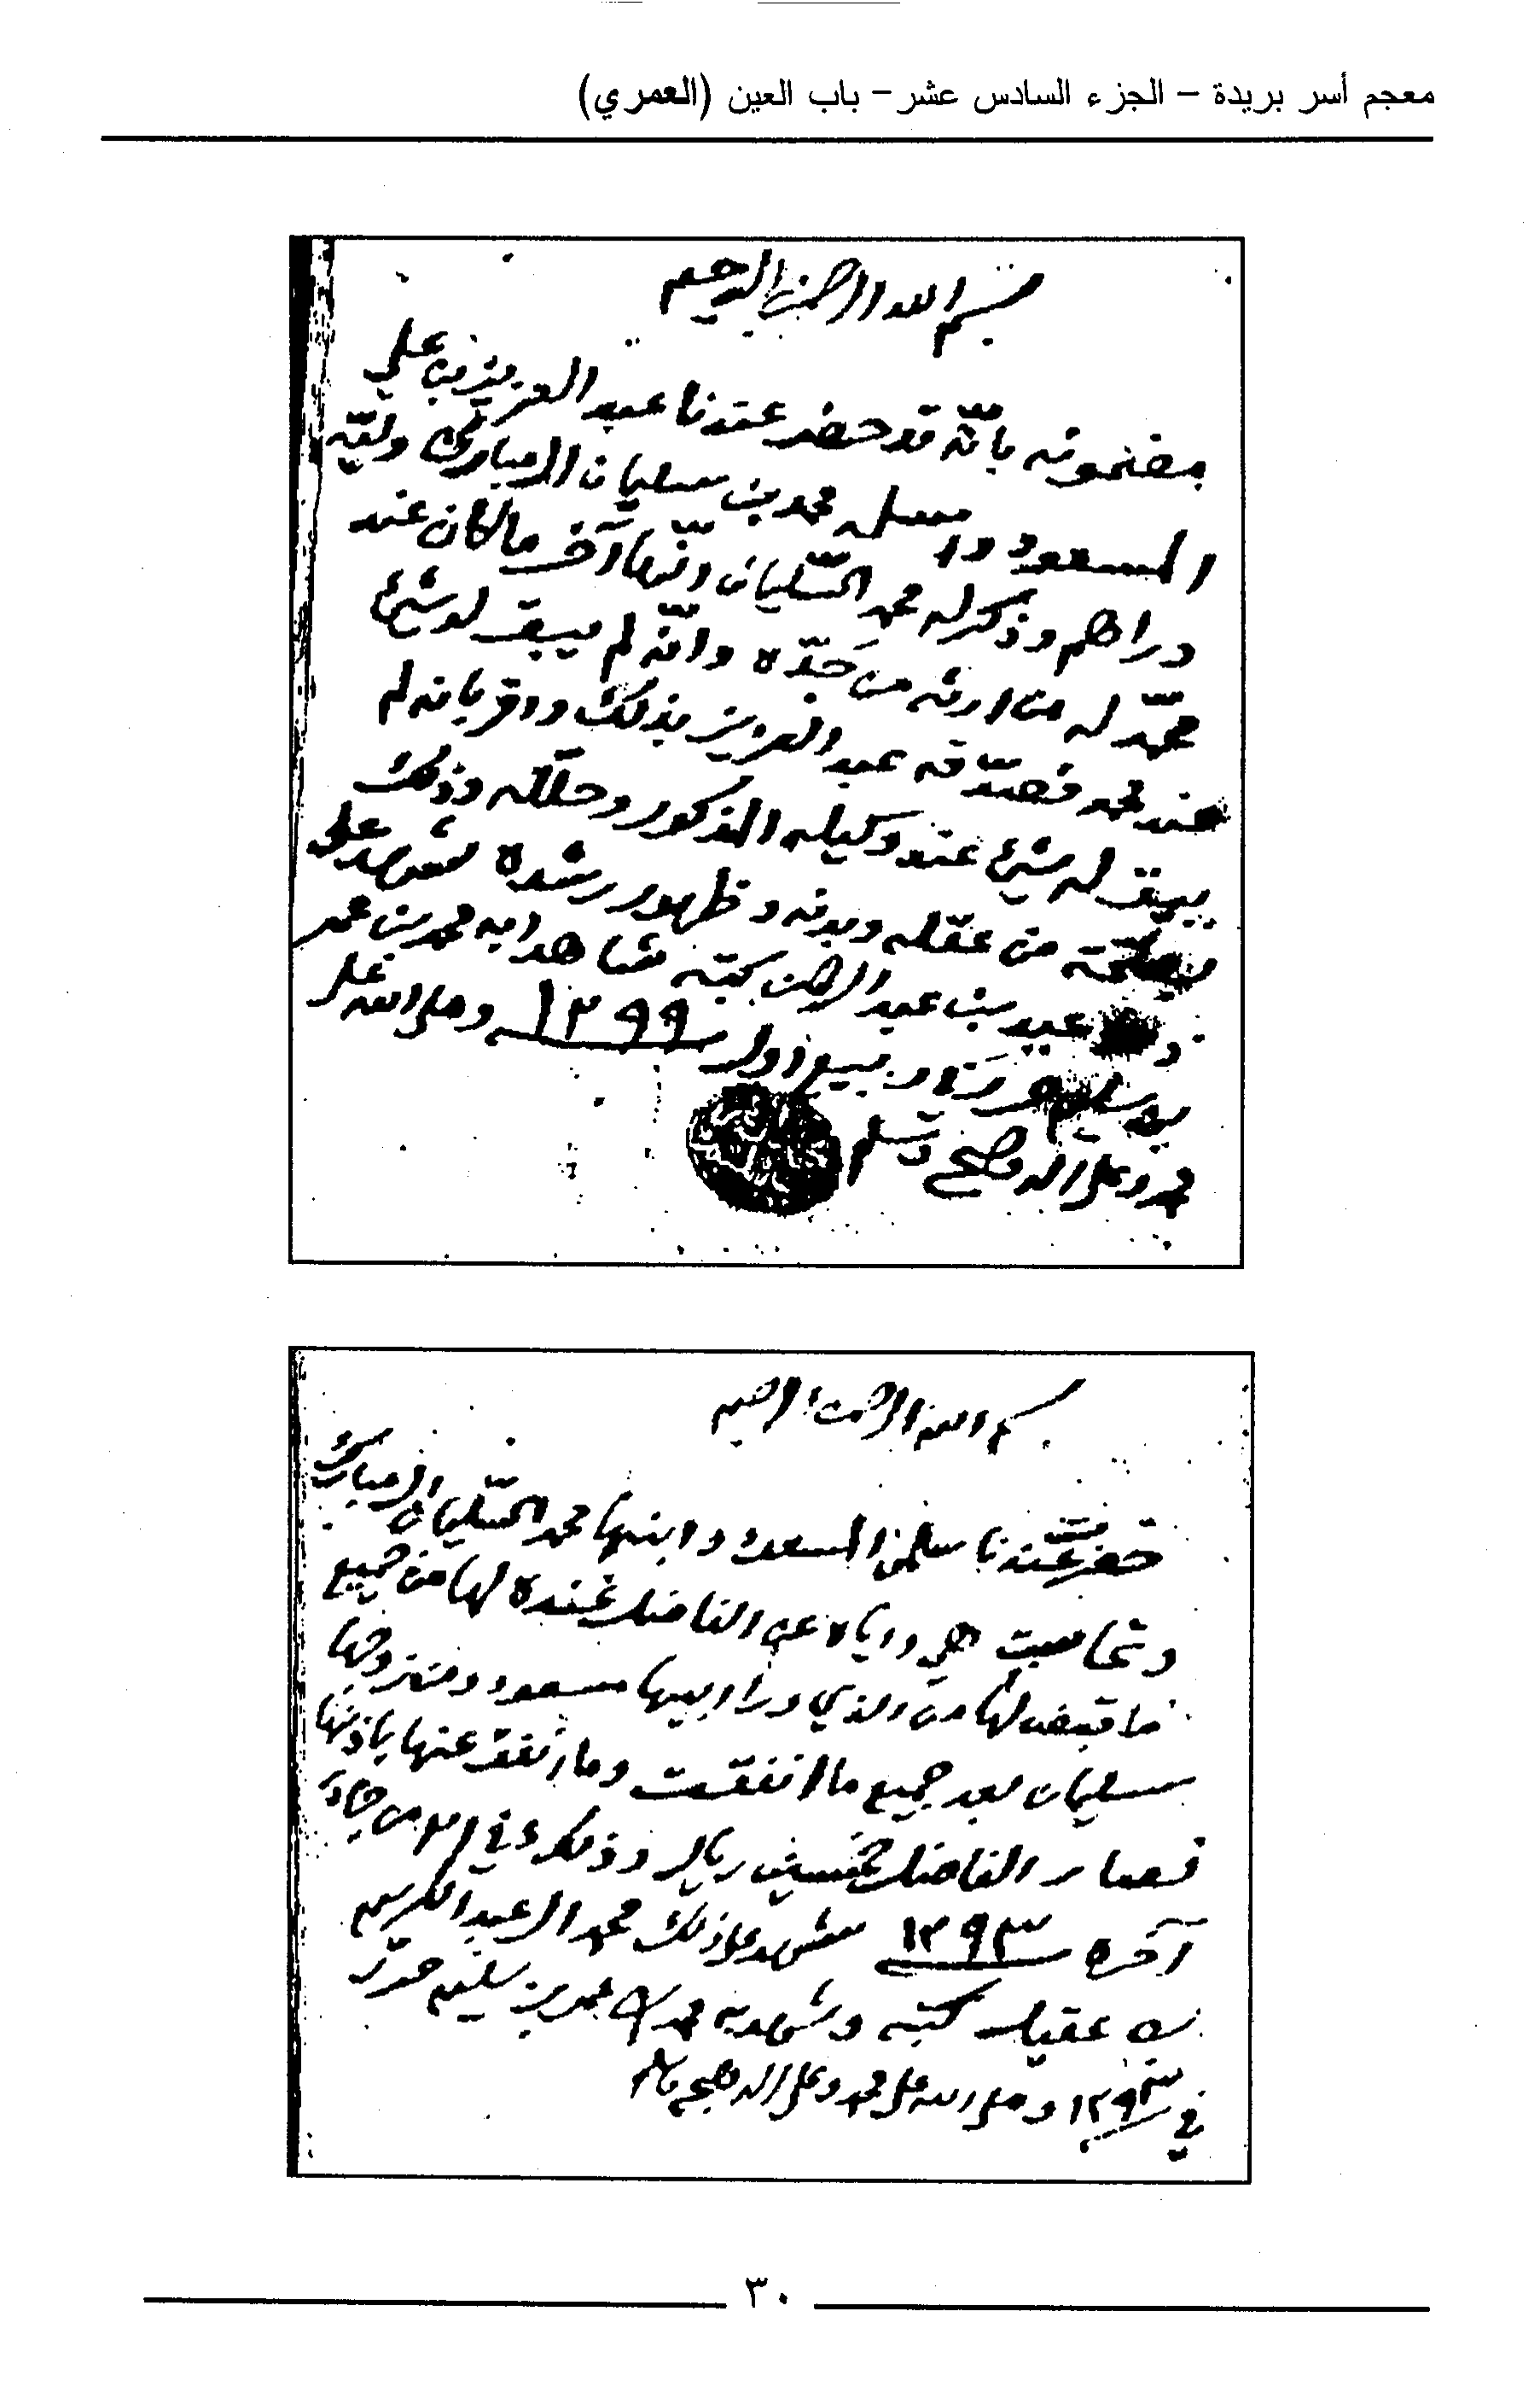 معجم أسر بريدة – الجزء السادس عشر – باب العين (العمري)
بسم الله الرحمن الرحيم
مضمونه بانّه قد حضر عندنا عبد العزيز بن علي
المسعود محمد بن سليمان المبارك
دراهم وذكر له محمد السّليمان وانّها آخر ما كان عند
محمّد له من ارثه من جَدّه وانّه لم يبق له شيئ
عند محمد فصدّقه عبد العزيز بذلك واقر بانه لم
يبق له شيئ عند وكيله المذكور وحلّله وذلك
بصحّة من عقله وبدنه وظهور رشده شهد على
عبيد بن عبد الرحمن كتبه شاهدا به محمد بن عمر
بن سليم ربيع اول ١٢٩٩ وصلى الله على
محمد وعلى اله وصحبه وسلم
بسم الله الرحمن الرحيم
حضر عندنا سلمى المسعود وابنها محمد السّليمان المبارك
وتحاسبت هي واياه عن الفاضل عنده لها من جميع
ما قبض لها من الذي ورا ابيها مسعود ومن زوجها
سليمان بعد جميع ما انفقت وما أنفق عنها باذنها
فصار الفاضل خمسين ريال وذلك في من جمادى
آخره ١٢٩٣ شهد على ذلك محمد العبد الكريم
بن عقيل كتبه وشهد به محمد بن عمر بن سليم حرّر
في ١٢٩٣ وصلى الله على محمد وعلى اله وصحبه وسلم
٣٠